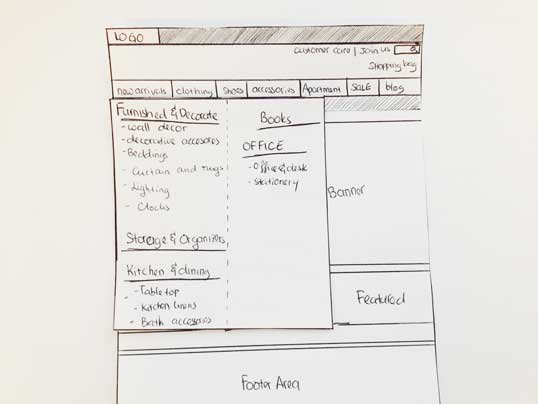 LOGO
Customer care | Join us
Shopping bag
new arrivals clothing Shoes accessories Apartment SALE blog
Furnished & Decorate
- wall decor
- decorative accesories
- Beddings
- Curtain and rugs
- Lighting
- Clocks
Storage & Organizers
Kitchen & dining
- Table top
- Kitchen linens
- Bath accesories
Books
OFFICE
- Office & desk
- Stationery
Banner
Featured
Footer Area